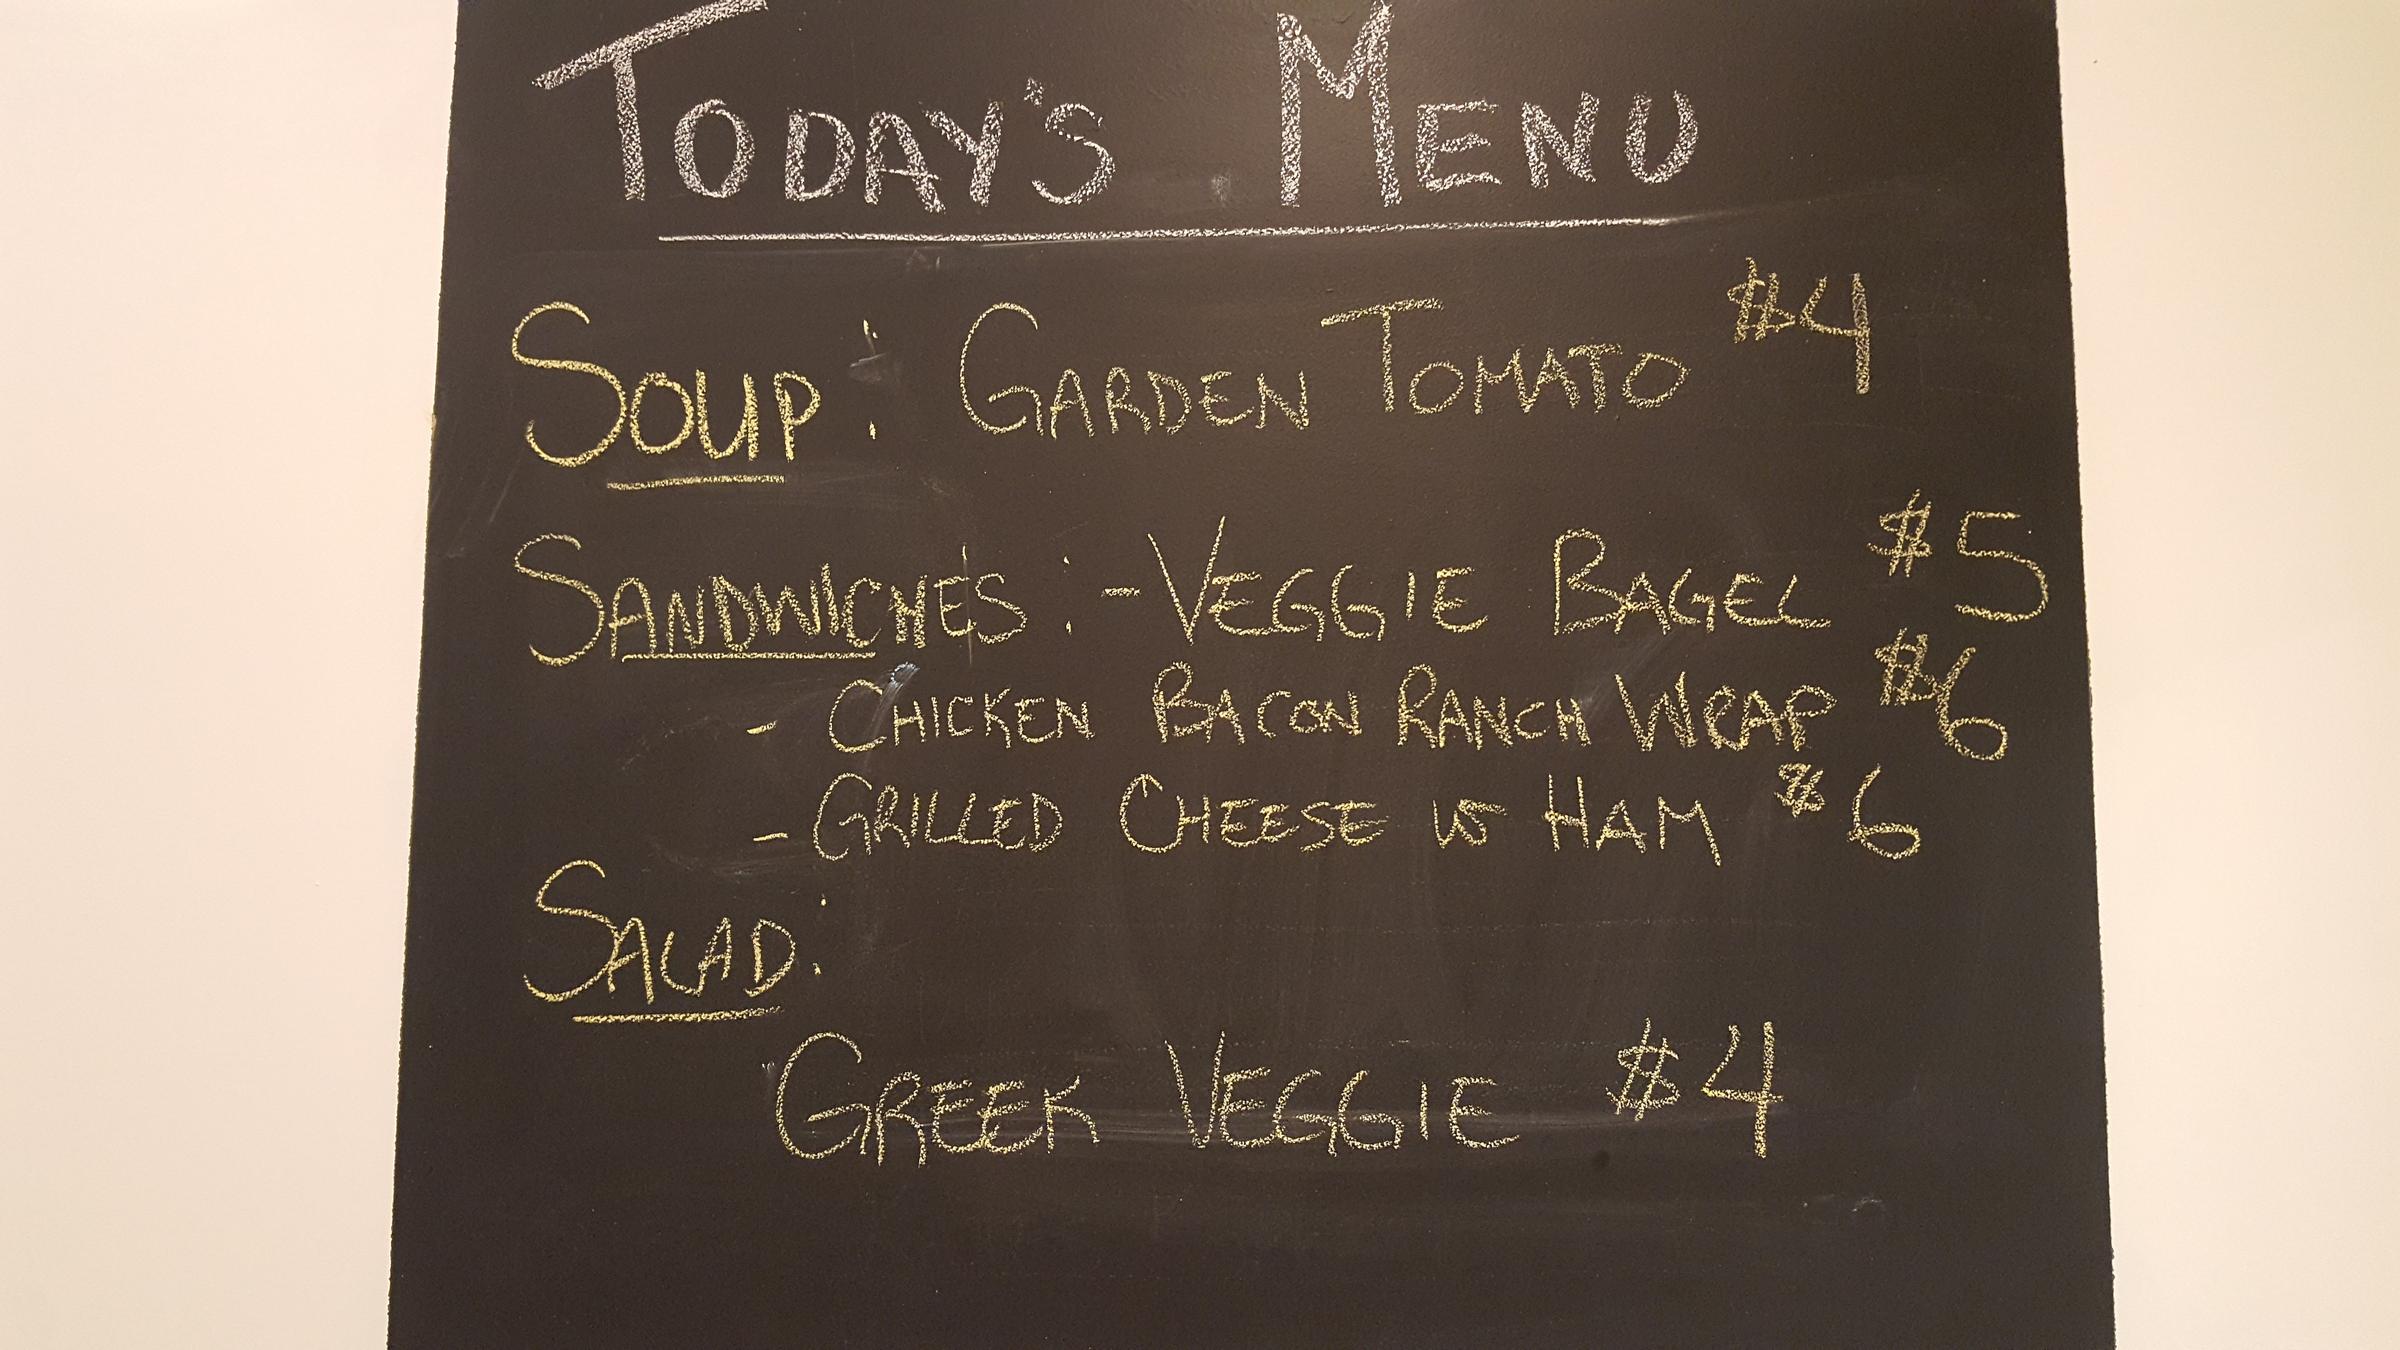 TODAY'S MENU
SOUP: GARDEN TOMATO $4
SANDWICHES: - VEGGIE BAGEL $5
- CHICKEN BACON RANCH WRAP $6
- GRILLED CHEESE W HAM $6
SALAD:
GREEK VEGGIE $4